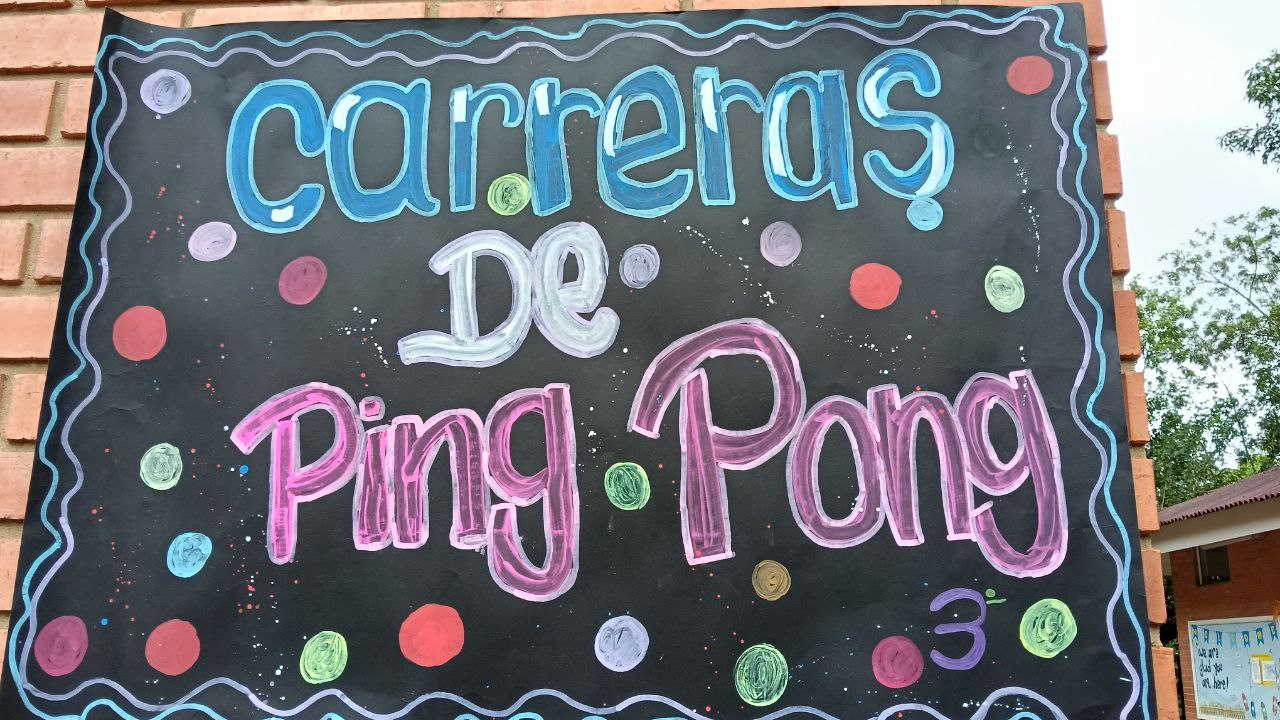 Carreras
De
Ping Pong
3°
we are
glad you
are here!